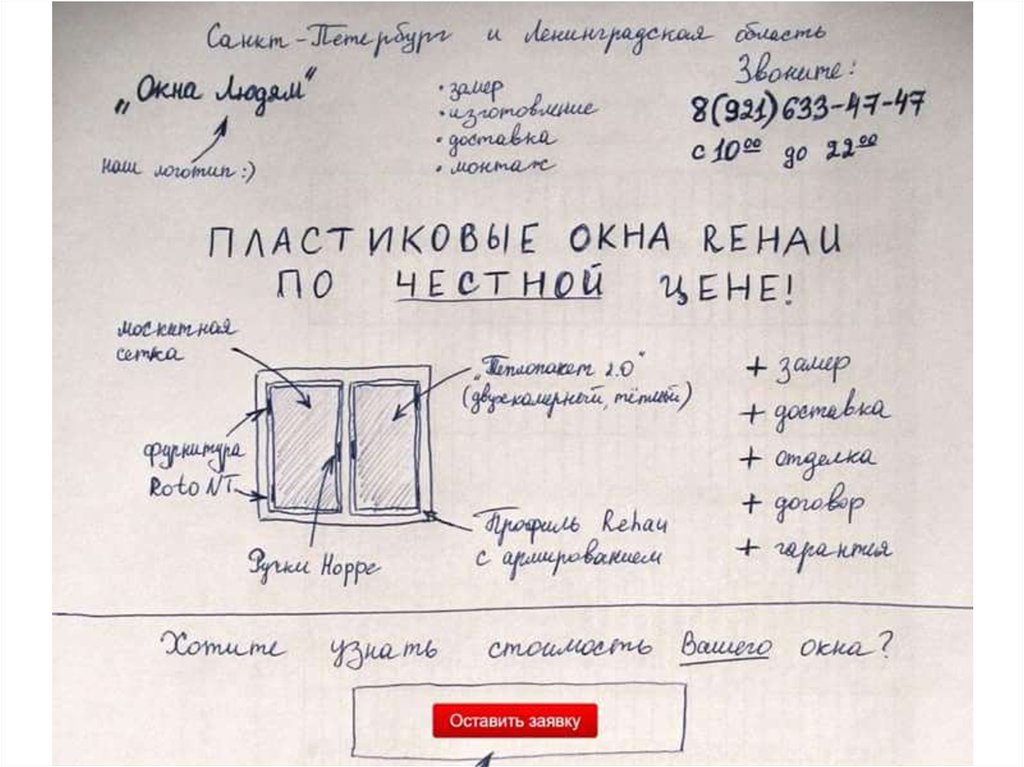 Санкт-Петербург и Ленинградская область
„Окна Людям"
наш логотип :)
• замер
• изготовление
• доставка
• монтаж
Звоните:
8(921)633-47-47
с 10⁰⁰ до 22⁰⁰
ПЛАСТИКОВЫЕ ОКНА REHAU
ПО ЧЕСТНОЙ ЦЕНЕ!
москитная
сетка
фурнитура
Roto NT
Ручки Hoppe
„Теплопакет 2.0"
(двухкамерный, тёплый)
Профиль Rehau
с армированием
+ замер
+ доставка
+ отделка
+ договор
+ гарантия
Хотите узнать стоимость Вашего окна?
Оставить заявку